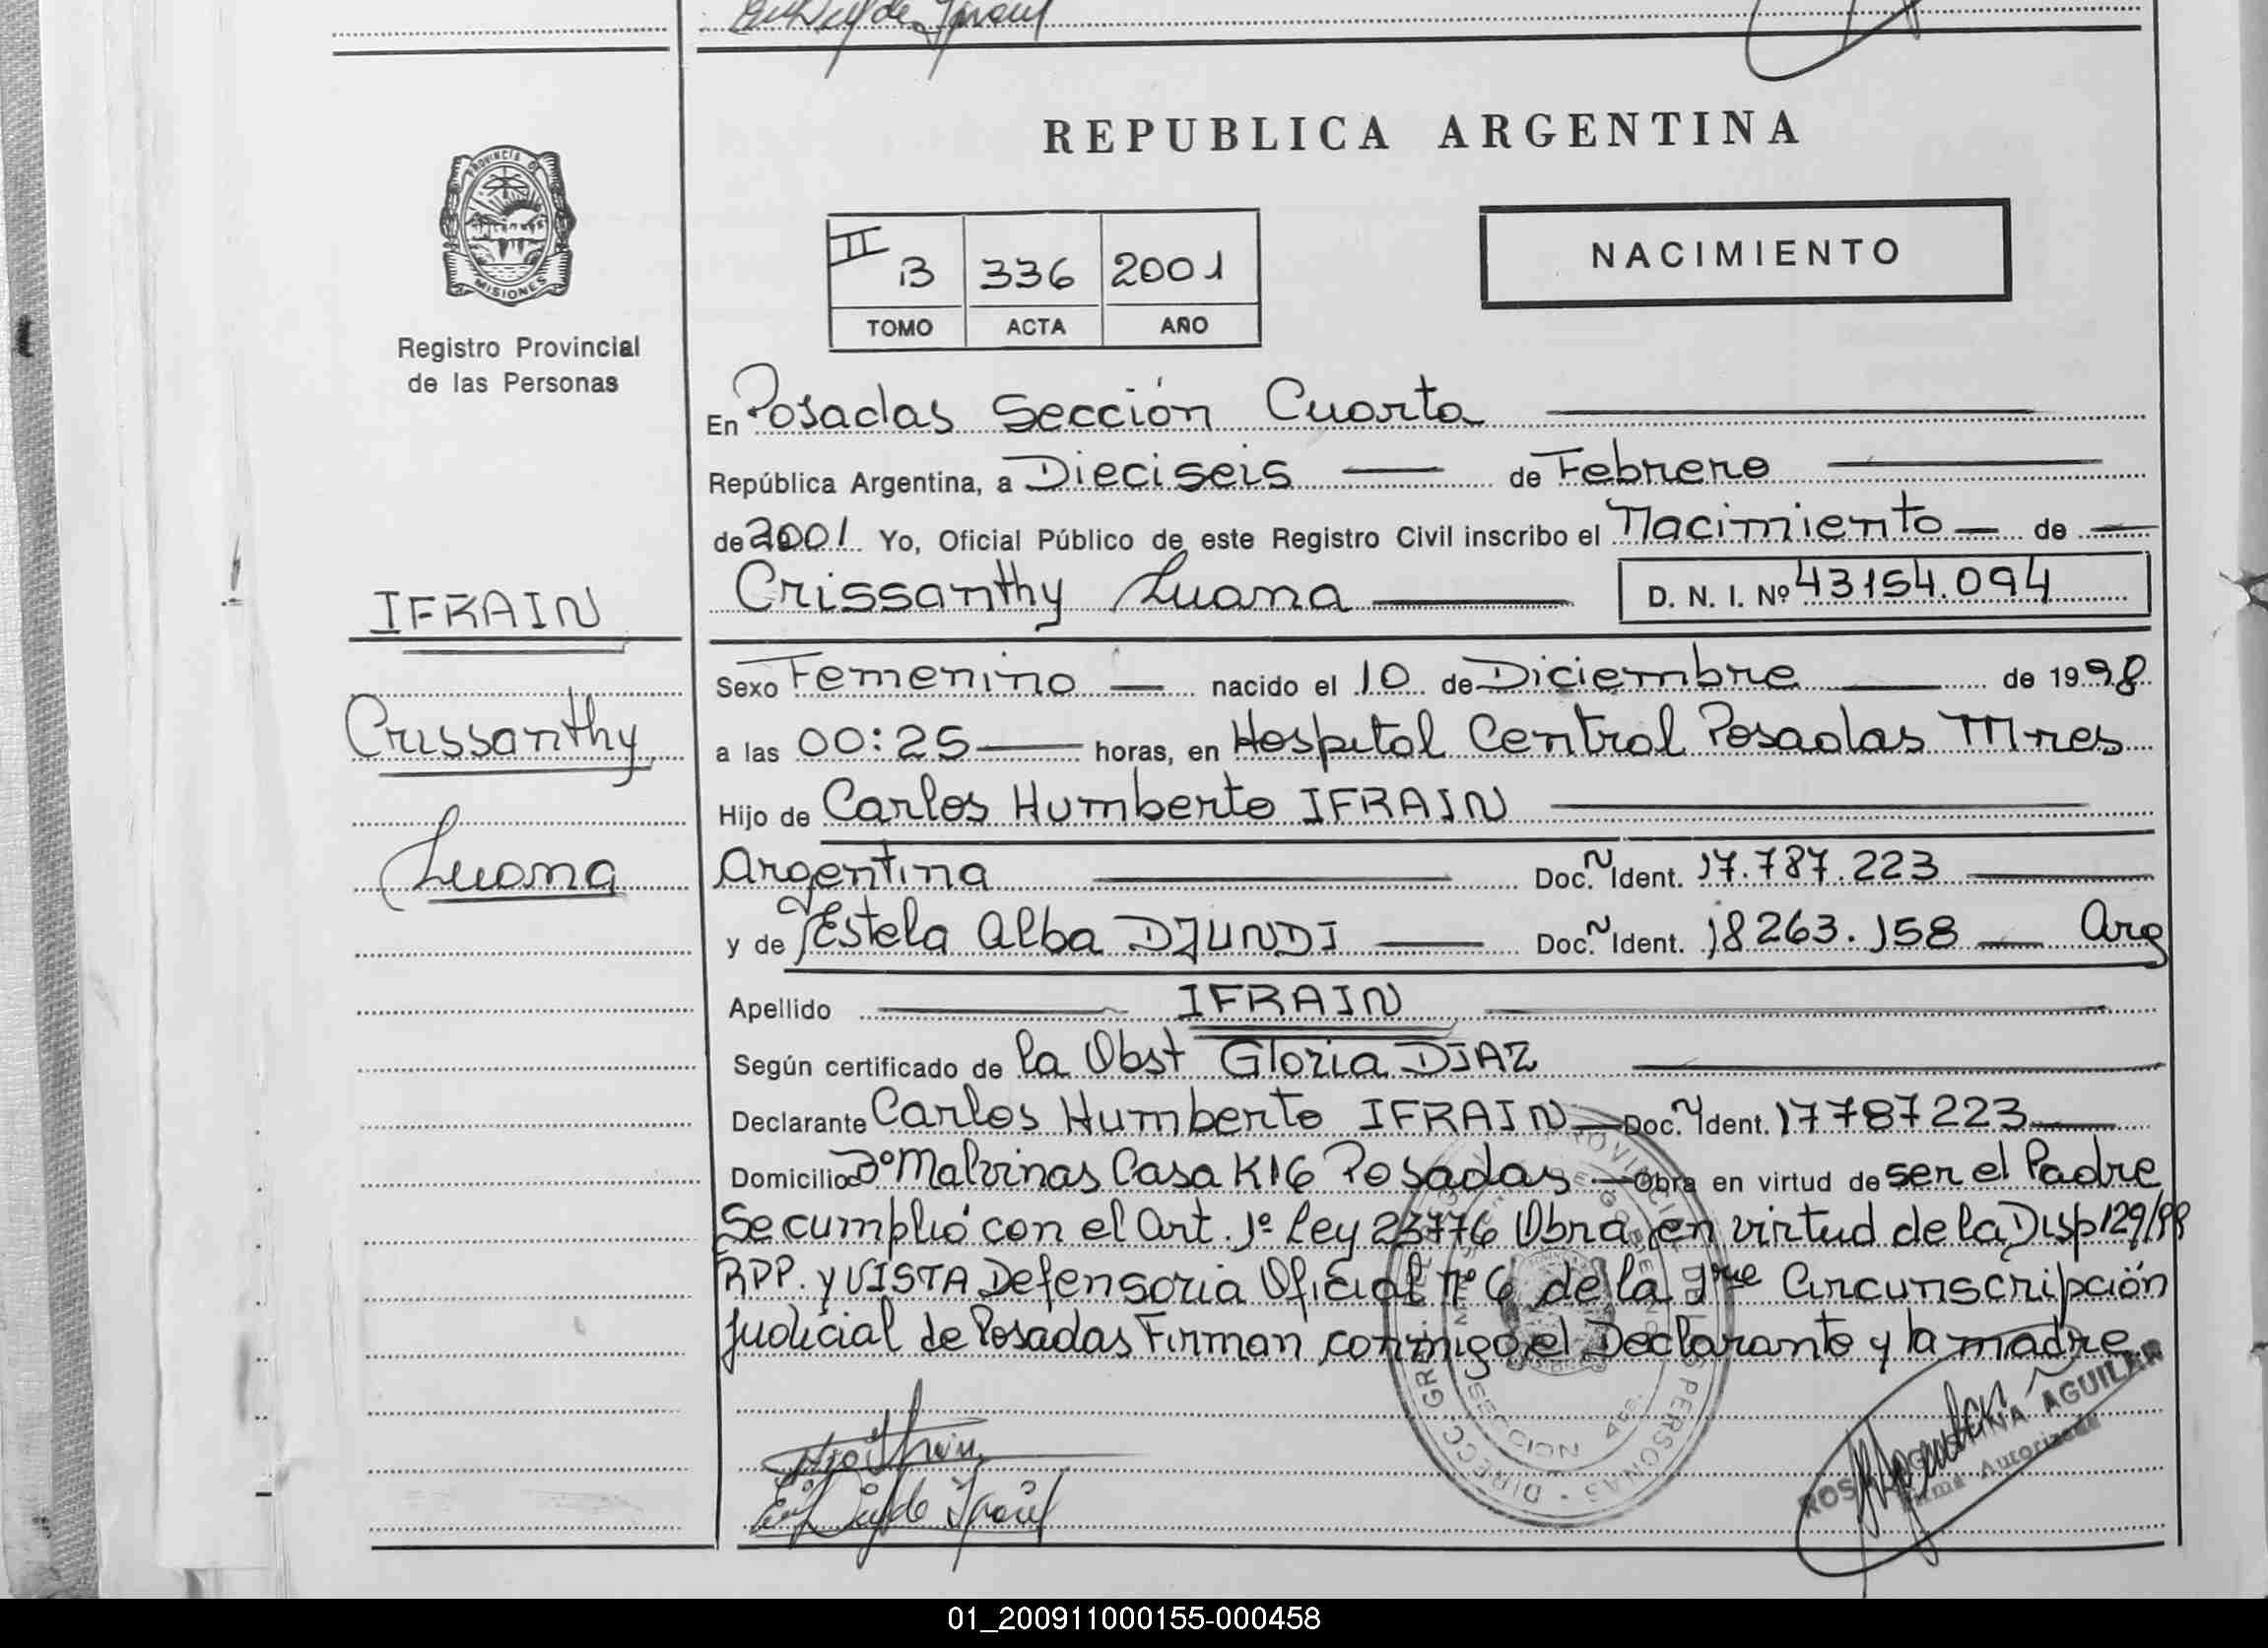 REPUBLICA ARGENTINA
PROVINCIA DE
MISIONES
Registro Provincial
de las Personas
II B 336 2001
TOMO ACTA AÑO
NACIMIENTO
En Posadas Sección Cuarta
República Argentina, a Dieciseis de Febrero
de 2001 Yo, Oficial Público de este Registro Civil inscribo el Nacimiento de
Crissanthy Luana D. N. I. Nº 43154.094
IFRAIN
Crissanthy
Luana
Sexo Femenino nacido el 10 de Diciembre de 1998
a las 00:25 horas, en Hospital Central Posadas Mnes
Hijo de Carlos Humberto IFRAIN
Argentina Doc. Ident. 17.787.223
y de Estela Alba DJUNDI Doc. Ident. 18263.158 Arg
Apellido IFRAIN
Según certificado de la Obst Gloria DIAZ
Declarante Carlos Humberto IFRAIN Doc. Ident. 17787223
Domicilio Bº Malvinas Casa K16 Posadas Obra en virtud de ser el Padre
Se cumplió con el Art. 1º Ley 23776 Obra en virtud de la Disp 129/99
RPP. y VISTA Defensoria Oficial nº 6 de la 1re Circunscripción
Judicial de Posadas Firman conmigo el Declarante y la madre
ROSA AGUSTINA AGUILAR
Firma Autorizada
01_200911000155-000458